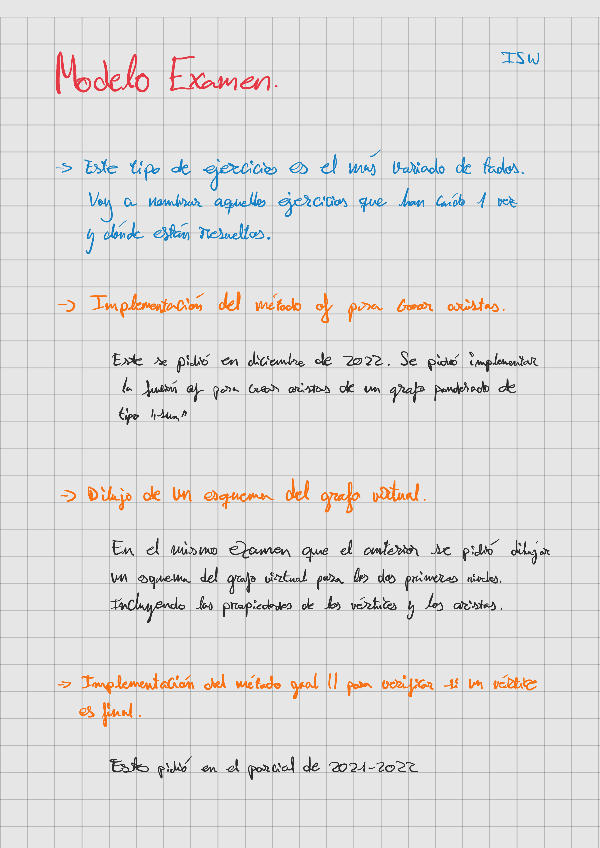 Modelo Examen.
ISW
-> Este tipo de ejercicios es el más variado de todos.
Voy a nombrar aquellos ejercicios que han caído 1 vez
y dónde están resueltos.
-> Implementación del método of para crear aristas.
Este se pidió en diciembre de 2022. Se pidió implementar
la función of para crear aristas de un grafo ponderado de
tipo "-sum"
-> Dibujo de un esquema del grafo virtual.
En el mismo examen que el anterior se pidió dibujar
un esquema del grafo virtual para los dos primeros niveles.
Incluyendo las propiedades de los vértices y las aristas.
-> Implementación del método goal () para verificar si un vértice
es final.
Este pidió en el parcial de 2021-2022